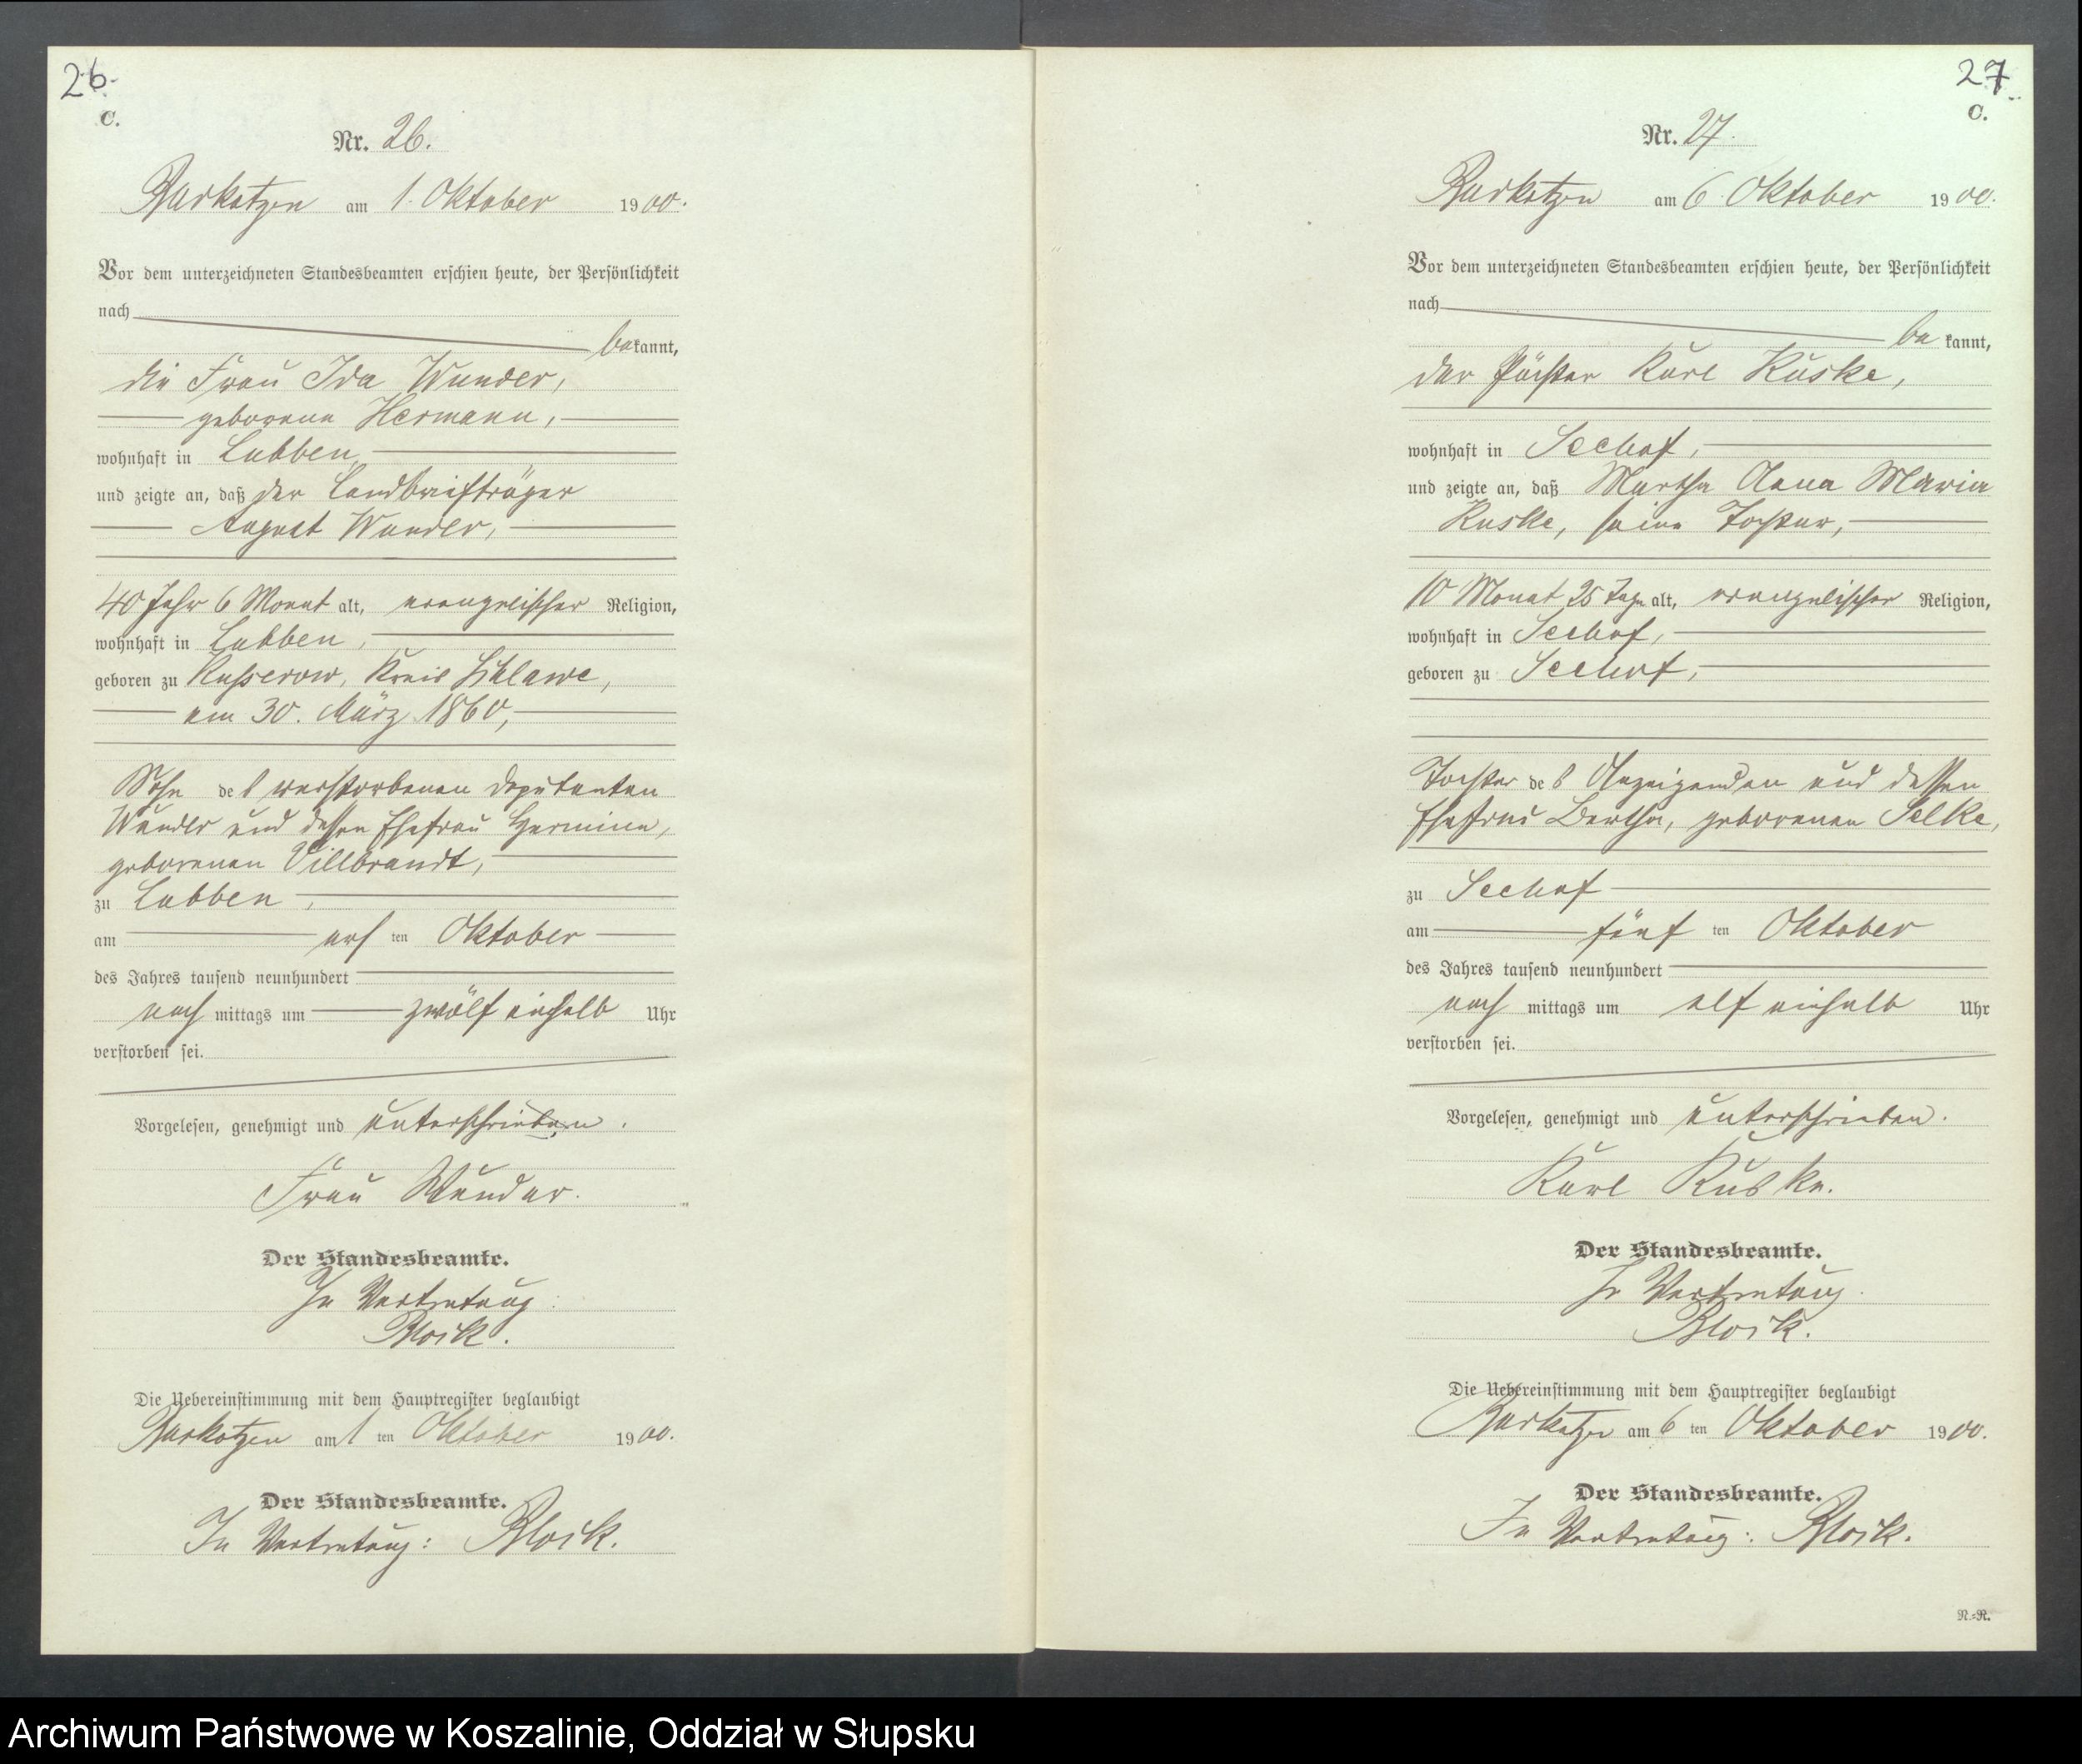 26.
C.
Nr. 26.
Barkotzen am 1. Oktober 1900.
Vor dem unterzeichneten Standesbeamten erschien heute, der Persönlichkeit
nach
bekannt,
die Frau Ida Wunder,
geborene Hermann,
wohnhaft in Labben,
und zeigte an, daß der Landbriefträger
August Wunder,
40 Jahr 6 Monat alt, evangelischer Religion,
wohnhaft in Labben,
geboren zu Kusserow, Kreis Schlawe,
am 30. März 1860,
Sohn des verstorbenen Deputanten
Wunder und dessen Ehefrau Hermine,
geborenen Villbrandt,
zu Labben,
am ten Oktober
des Jahres tausend neunhundert
nach mittags um zwölf einhalb Uhr
verstorben sei.
Vorgelesen, genehmigt und unterschrieben.
Frau Wunder.
Der Standesbeamte.
In Vertretung:
Block.
Die Uebereinstimmung mit dem Hauptregister beglaubigt
Barkotzen am 1 ten Oktober 1900.
Der Standesbeamte.
In Vertretung: Block.
27
C.
Nr. 27.
Barkotzen am 6. Oktober 1900.
Vor dem unterzeichneten Standesbeamten erschien heute, der Persönlichkeit
nach
bekannt,
der Pächter Karl Kuske,
wohnhaft in Seehof,
und zeigte an, daß Martha Anna Maria
Kuske, seine Tochter,
10 Monat 25 Tage alt, evangelischer Religion,
wohnhaft in Seehof,
geboren zu Seehof,
Tochter des Anzeigenden und dessen
Ehefrau Bertha, geborenen Selke,
zu Seehof
am fünf ten Oktober
des Jahres tausend neunhundert
nach mittags um elf einhalb Uhr
verstorben sei.
Vorgelesen, genehmigt und unterschrieben.
Karl Kuske.
Der Standesbeamte.
In Vertretung.
Block.
Die Uebereinstimmung mit dem Hauptregister beglaubigt
Barkotzen am 6 ten Oktober 1900.
Der Standesbeamte.
In Vertretung: Block.
N.=R.
Archiwum Państwowe w Koszalinie, Oddział w Słupsku